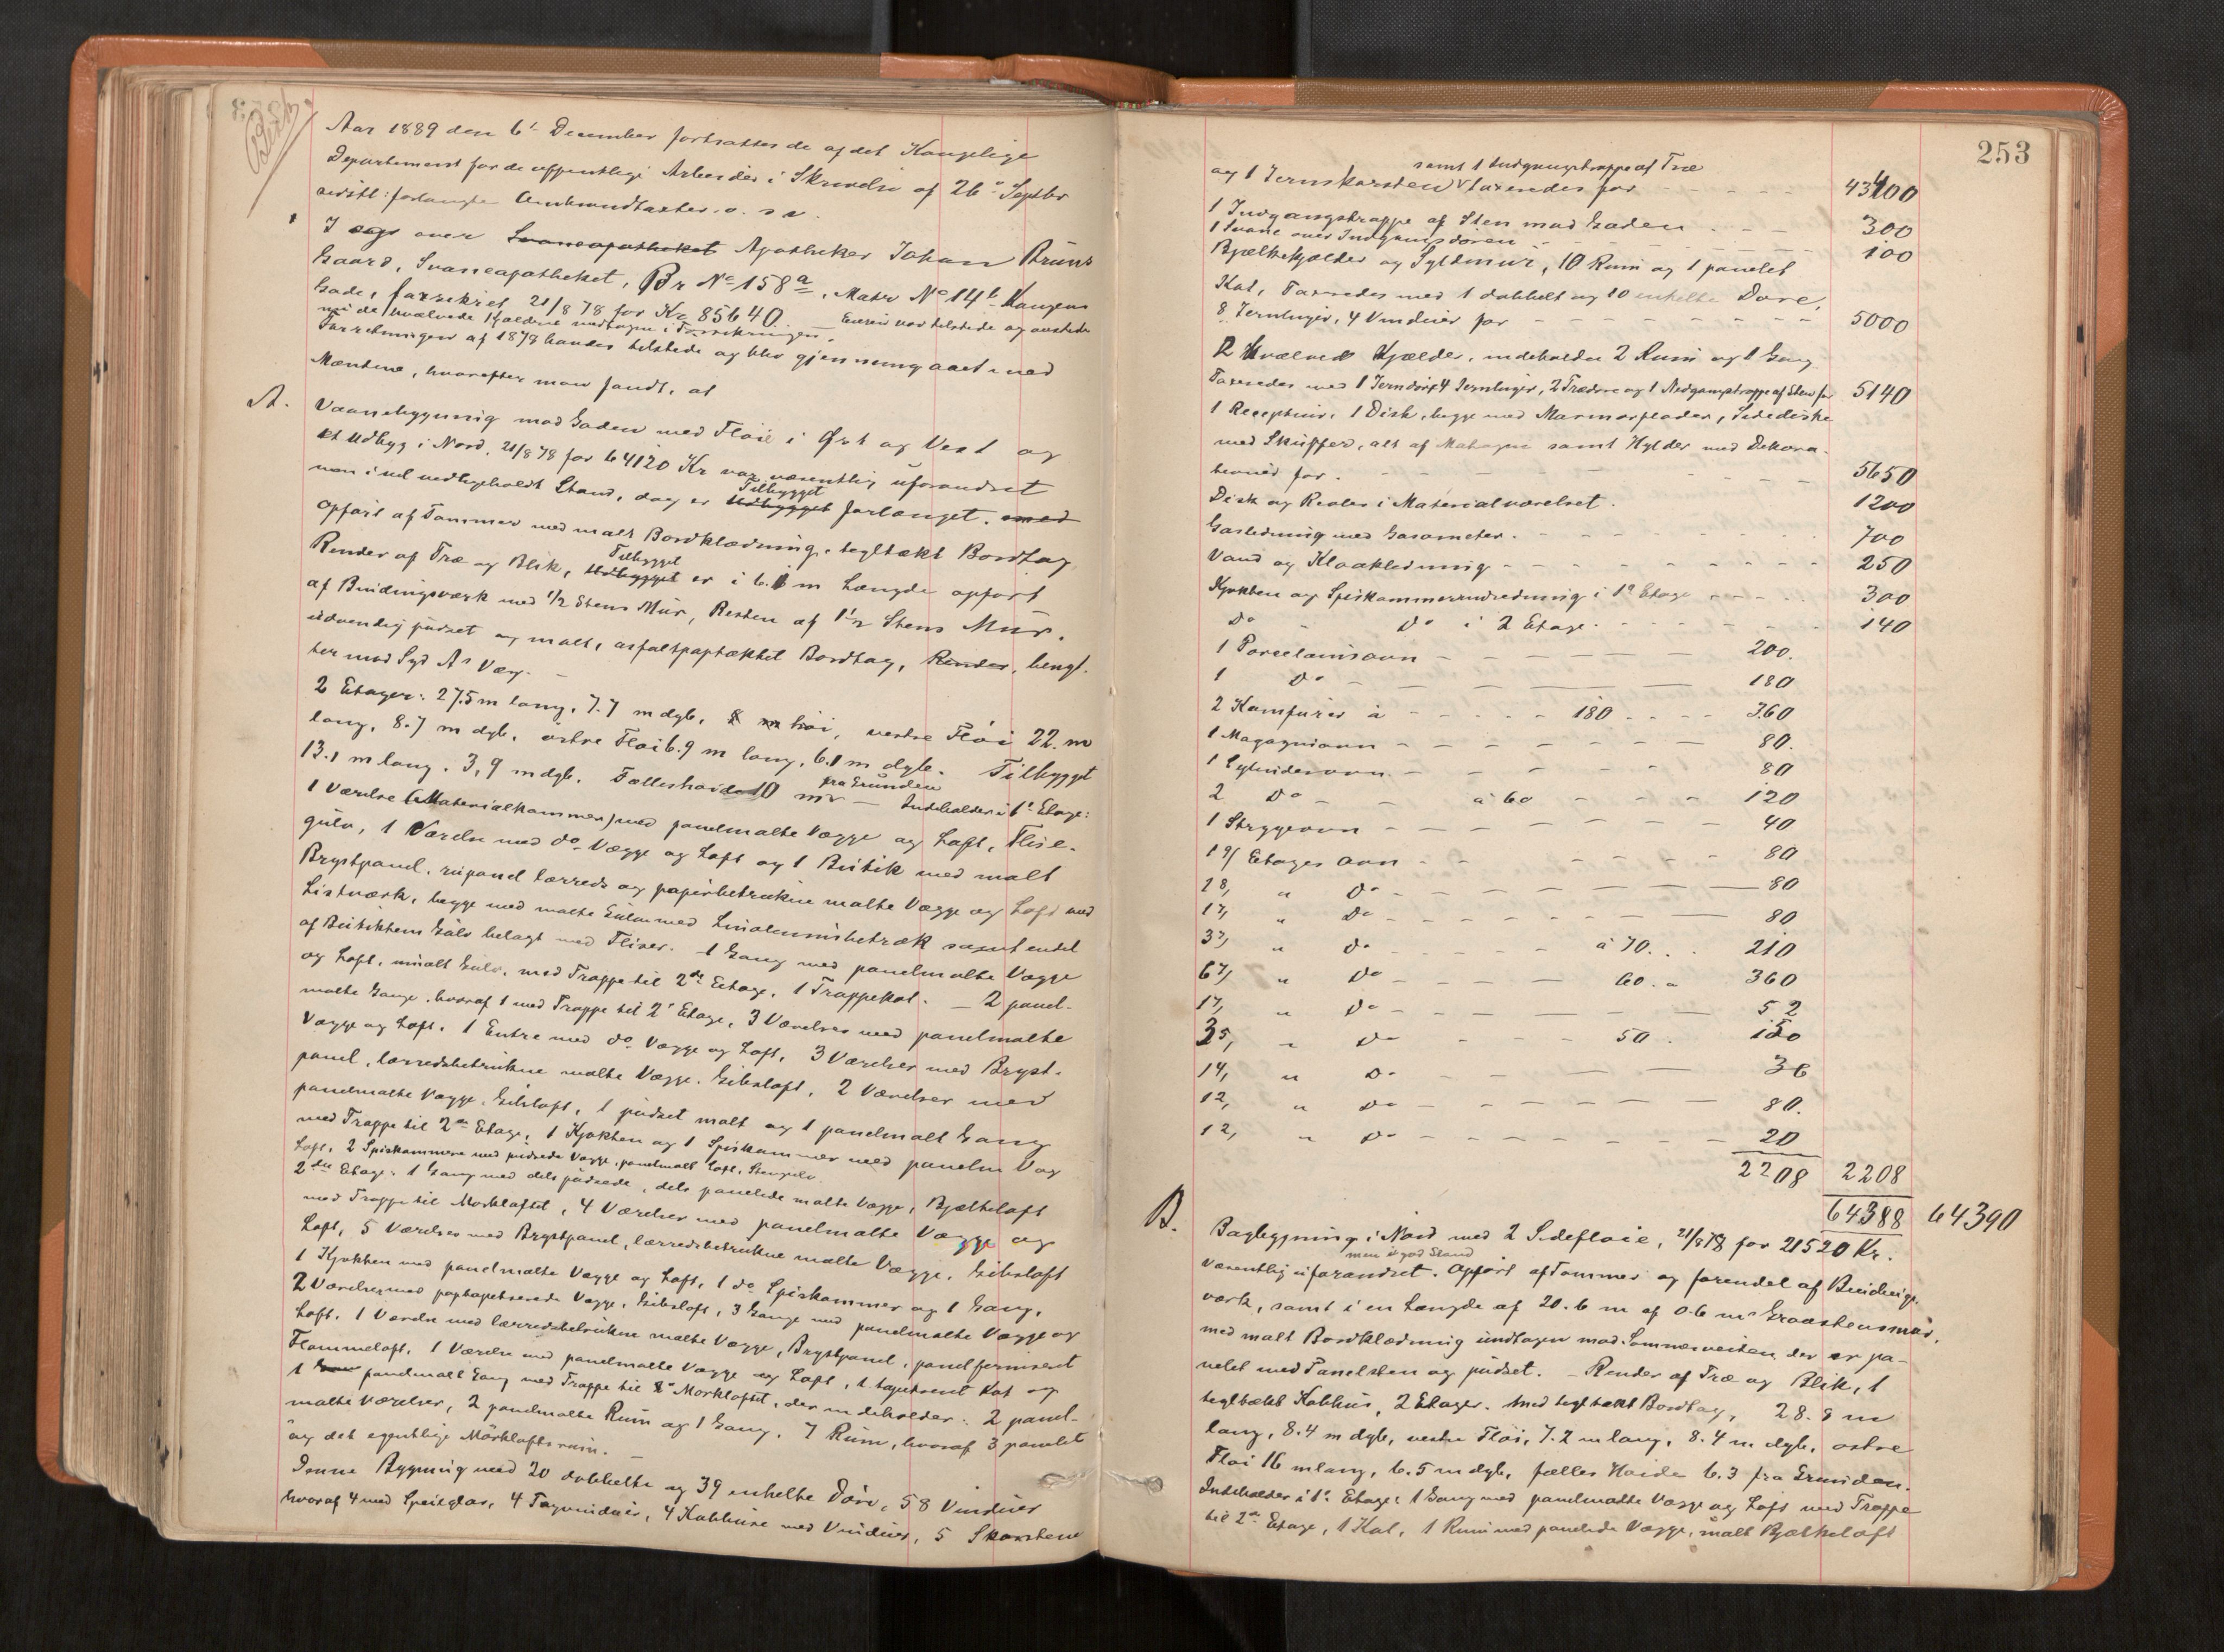 Aar 1889 den 6te December fortsattes de af det Kongelige
Departement for de offentlige Arbeider i Skrivelse af 26de Septbr
sidstl: forlangte Ombrandtaxter o. s v.
over Svaneapotheket Apotheker Johan Bruns
Gaard, Svaneapotheket, Br No 158a, Matr No 14b Kongens
Gade, forsikret 21/8 78 for Kr 85640. Eieren var tilstede og ønskede
nu de hvælvede Kjeldere medtagen i Forsikringen.
Forretningen af 1878 havdes tilstede og blev gjennemgaaet med
Mændene, hvorefter man fandt, at
A. Vaanebygning mod Gaden med Fløie i Øst og Vest og
et Udbyg i Nord, 21/8 78 for 64120 Kr var væsentlig uforandret
men i vel vedligeholdt Stand, dog er Udbygget Tilbygget forlænget. med
Opført af Tømmer med malt Bordklædning, tegltækt Bordtag
Render af Træ og Blik, Udbygget Tilbygget er i 6.1 m Længde opført
af Bindingsværk med 1/2 Stens Mur, Resten af 1 1/2 Stens Mur.
udvendig pudset og malt, asfaltpaptækket Bordtag, Render, hengt.
ter mod Syd A's Væg. —
2 Etager: 27.5 m lang, 7.7 m dyb, 8 m høi, vestre Fløi 22. m
lang, 8.7 m dyb, østre Fløi 6.9 m lang, 6.1 m dybe. Tilbygget
13.1 m lang, 3,9 m dyb. Fælleshøide 10 m fra Grunden — Indeholder i 1ste Etage:
1 Værelse (Materialkammer) med panelmalte Vægge og Loft, Flise-
gulv, 1 Værelse med do Vægge og Loft og 1 Butik med malt
Brystpanel, rupanel lærreds og papirbetrukne malte Vægge og Loft med
Listværk, begge med malte Gulve med Linoleumsbetræk samt endel
af Butikkens Gulv belagt med Fliser. 1 Gang med panelmalte Vægge
og Loft, umalt Gulv, med Trappe til 2den Etage, 1 Trappekot. — 2 panel-
malte Gange, hvoraf 1 med Trappe til 2den Etage, 3 Værelser med panelmalte
Vægge og Loft. 1 Entre med do Vægge og Loft, 3 Værelser med Bryst-
panel, lærredsbetrukne malte Vægge, Gibsloft, 2 Værelser med
panelmalte Vægge, Gibsloft, 1 pudset malt og 1 panelmalt Gang
med Trappe til 2den Etage, 1 Kjøkken og 1 Spiskammer med panelm Væg
Loft, 2 Spiskammere med pudsede Vægge, panelmalt Loft, Stengulv.
2den Etage: 1 Gang med dels pudsede, dels panelede malte Vægge, Bjælkeloft
med Trappe til Mørkloftet, 4 Værelser med panelmalte Vægge og
Loft, 5 Værelser med Brystpanel, lærredsbetrukne malte Vægge, Gibsloft
1 Kjøkken med panelmalte Vægge og Loft, 1 do Spiskammer og 1 Gang,
2 Værelser med paptapetserede Vægge, Gibsloft, 3 Gange med panelmalte Vægge og
Loft. 1 Værelse med lærredsbetrukne malte Vægge, Brystpanel, panelferniseret
Flammeloft, 1 Værelse med panelmalte Vægge og Loft, 1 tapetseret Kot og
1 panelmalt Gang med Trappe til Mørkloftet, der indeholder: 2 panel-
malte Værelser, 2 panelmalte Rum og 1 Gang. 7 Rum, hvoraf 3 panelet
og det egentlige Mørkloftsrum. —
Denne Bygning med 20 dobbelte og 39 enkelte Døre, 58 Vinduer
hvoraf 4 med Speilglas, 4 Tagvinduer, 4 Kobhuse med Vinduer, 5 Skorstene
253
samt 1 Indgangstrappe af Træ
og 1 Jernskorsten taxeredes for 43400
1 Indgangstrappe af Sten mod Gaden 300
1 Svane over Indgangsdøren 100
Bjælkekjelder og Syldmur, 10 Rum og 1 panelet
Kot, Taxeredes med 1 dobbelt og 10 enkelte Døre,
8 Jernluger, 4 Vinduer for 5000
2 hvælved Kjælder, indeholder 2 Rum og 1 Gang
Taxeredes med 1 Jerndør, 4 Jernluger, 2 Trædøre og 1 Nedgangstrappe af Sten for 5140
1 Receptur, 1 Disk, begge med Marmorplader, Sidediske
med Skuffer, alt af Mahogni samt Hylder med Dekora-
tioner for. 5650
Disk og Reoler i Materialværelset. 1200
Gasledning med Gasometer. 700
Vand og Kloakledning 250
Kjøkken og Spiskammerindredning i 1ste Etage 300
Do - Do i 2 Etage. 140
1 Porcelainsovn 200.
1 Do 180
2 Kamfurer à 180 360
1 Magagniovn 80.
1 Cylinderovn 80
2 Do à 60 120
1 Strygeovn 40
1 9/ Etages Ovn 80
1 8/ " Do 80
1 7/ " Do 80
3 7/ " Do à 70. 210
6 7/ " Do 60. " 360
1 7/ " Do 52
3 5/ " Do 50. 150
1 4/ " Do 36
1 2/ " Do 80.
1 2/ " Do 20
2208 2208
64388 64390
B. Bagbygning i Nord med 2 Sidefløie, 21/8 78 for 21520 Kr.
væsentlig uforandret. men i god Stand Opført af Tømmer og forendel af Bindings-
værk, samt i en Længde af 20.6 m af 0.6 m Graastensmur,
med malt Bordklædning undtagen mod Sommerveiten, der er pa-
nelet med Panelsten og pudset. — Render af Træ og Blik, 1
tegltækt Kobhus, 2 Etager. med tegltækt Bordtag, 28.8 m
lang, 8.4 m dyb, vestre Fløi, 7.2 m lang, 8.4 m dyb, østre
Fløi 16 m lang, 6.5 m dyb, fælles Høide 6.3 fra Grunden.
Indeholder i 1ste Etage: 1 Gang med panelmalte Vægge og Loft med Trappe
til 2den Etage, 1 Kot, 1 Rum med panelede Vægge, malt Bjælkeloft